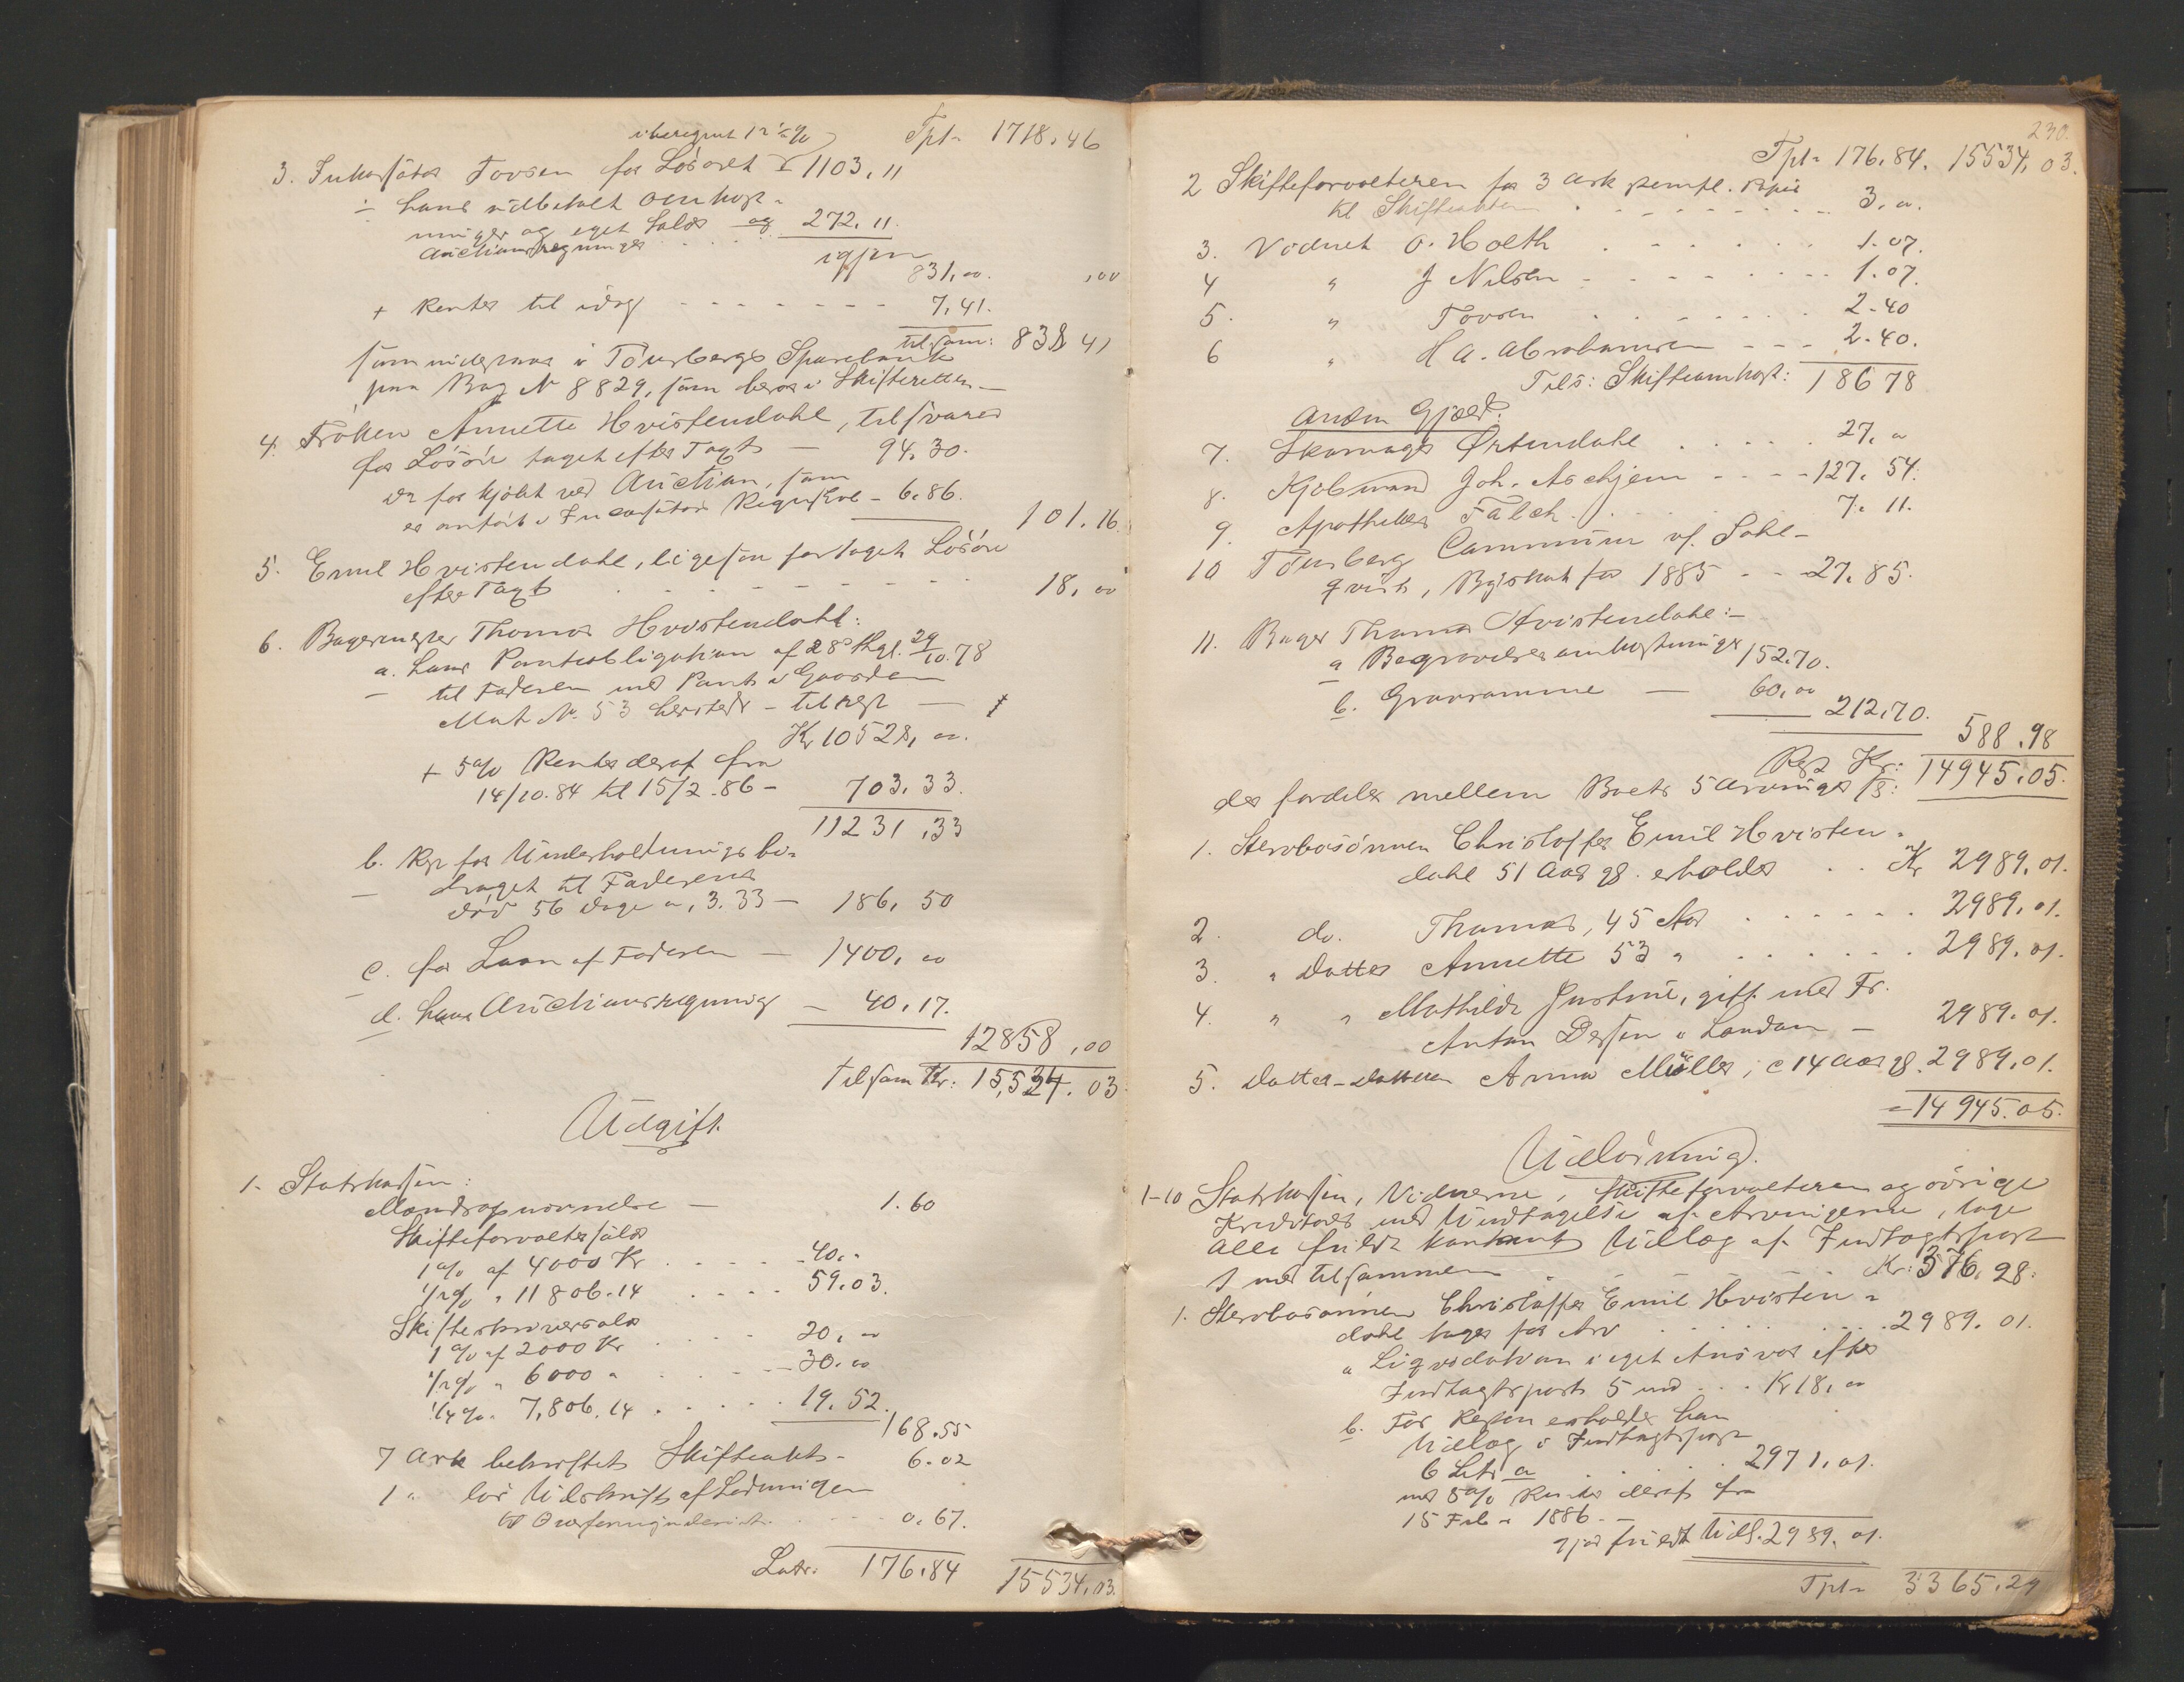 iberegnet 12½% Tpt. 1718,46
3. Inkassator Tovsen for Løsøret 1103,11
÷ hans udbetalt Omkost-
ninger og eget Salær og 272.11.
Auctionsregninger
igjen
831,00. ,00
+ Renter til idag - - - 7,41.
tilsam: 838 41
som indestaar i Tønsbergs Sparebank
paa Bog N 8829, som beror i Skifteretten
4. Frøken Annette Hvistendahl, tilsvarer
for Løsøre taget efter Taxt — 94.30.
do for kjøbt ved Auction, som
er anført i Incassators Regnskab - 6.86.
101.16
5. Emil Hvistendahl, ligesom fortaget Løsøre
efter Taxt 18,00
6. Bagermester Thomas Hvistendahl:
a. hans Panteobligation af 28 thgl. 29/10.78
til Faderen med Pant i Gaarden
Mat. N. 53 hersteds - tilrest —
Kr 10528,00.
+ 5% Renter deraf fra
14/10.84 til 15/2.86 - 703.33.
11231,33
b. Rest for Underholdningsbi-
draget til Faderens
død 56 Dage a, 3.33 — 186,50
c. for Laan af Faderen — 1400,00
d. hans Auctionsregning — 40.17.
12858,00
Tilsam Kr: 15,534.03
Udgift.
1. Statskassen:
Mandtapsnævnelse — 1.60
Skifteforvaltersalær
1% af 4000 Kr . . . . 40.-
½% " 11806.14 . . . . 59.03.
Skifteskriversalær
1% af 2000 Kr . . . . 20,00
½% " 6000 " . . . . 30.00
¼% " 7,806.14 . . . . 19.52.
168.55
7 Ark bekræftet Skifteakt - 6.02
1 " løs Udskrift af Lodningen
til Overformynderiet. . . . 0.67.
Latr. 176.84 15534,03.
230.
Tpt. 176.84. 15534,03.
2 Skifteforvalteren for 3 Ark stempl. Papir
til Skifteakten . . . . 3.00.
3. Vidnet O. Holth . . . . 1.07.
4 " J Nilsen . . . . 1.07.
5. " Tovsen . . . . 2.40
6 " H A. Abrahamsen - - - 2.40.
Tils: Skifteomkost: 186 78
Anden Gjæld.
7. Skomager Ørtendahl . . . . 27.00
8. Kjøbmand Joh. Aschjem - - - 127.54.
9. Apotheker Falch . . . . 7.11.
10 Tønsberg Commune vf. Sahl-
qvist, Byskat for 1885 - - 27.85.
11. Bager Thomas Hvistendahl:-
a Begravelsesomkostninger 152.70.
b. Gravramme — 60,00
212,70.
588.98
Rest Kr: 14945,05.
der fordeles mellem Boets 5 Arvinger /s:
1. Stervbosønnen Christoffer Emil Hvisten-
dahl 51 Aar gl. erholder . . Kr 2989,01.
2. do. Thomas, 45 Aar . . . . 2989,01.
3. " Datter Annette 53 " . . . . 2989,01.
4. " " Mathilde Justine, gift med Fr.
Anton Dessen i London — 2989.01.
5. Datter-Datteren Anna Müller, c 14 Aar gl. 2989,01.
= 14945.05.
Udlodning.
1-10 Statskassen, Vidnerne, Skifteforvalteren og øvrige
Kreditorer med Undtagelse af Arvingerne, tage
alle fuldt kontant Udlæg af Indtægtspost
1 med tilsammen . . . . Kr: 376,28.
1. Stervbosønnen Christoffer Emil Hvisten-
dahl tager for Arv . . . . 2989.01.
a Liqvidation i eget Ansvar efter
Indtægtspost 5 med . . . Kr 18,00
b. For Resten erholder han
Udlæg i Indtægtspost
6 Litr a . . . . 2971,01.
med 5% Renter deraf fra
15 Feb. 1886. -
gjør fuldt Udl. 2989,01.
Tpt. 3365.29